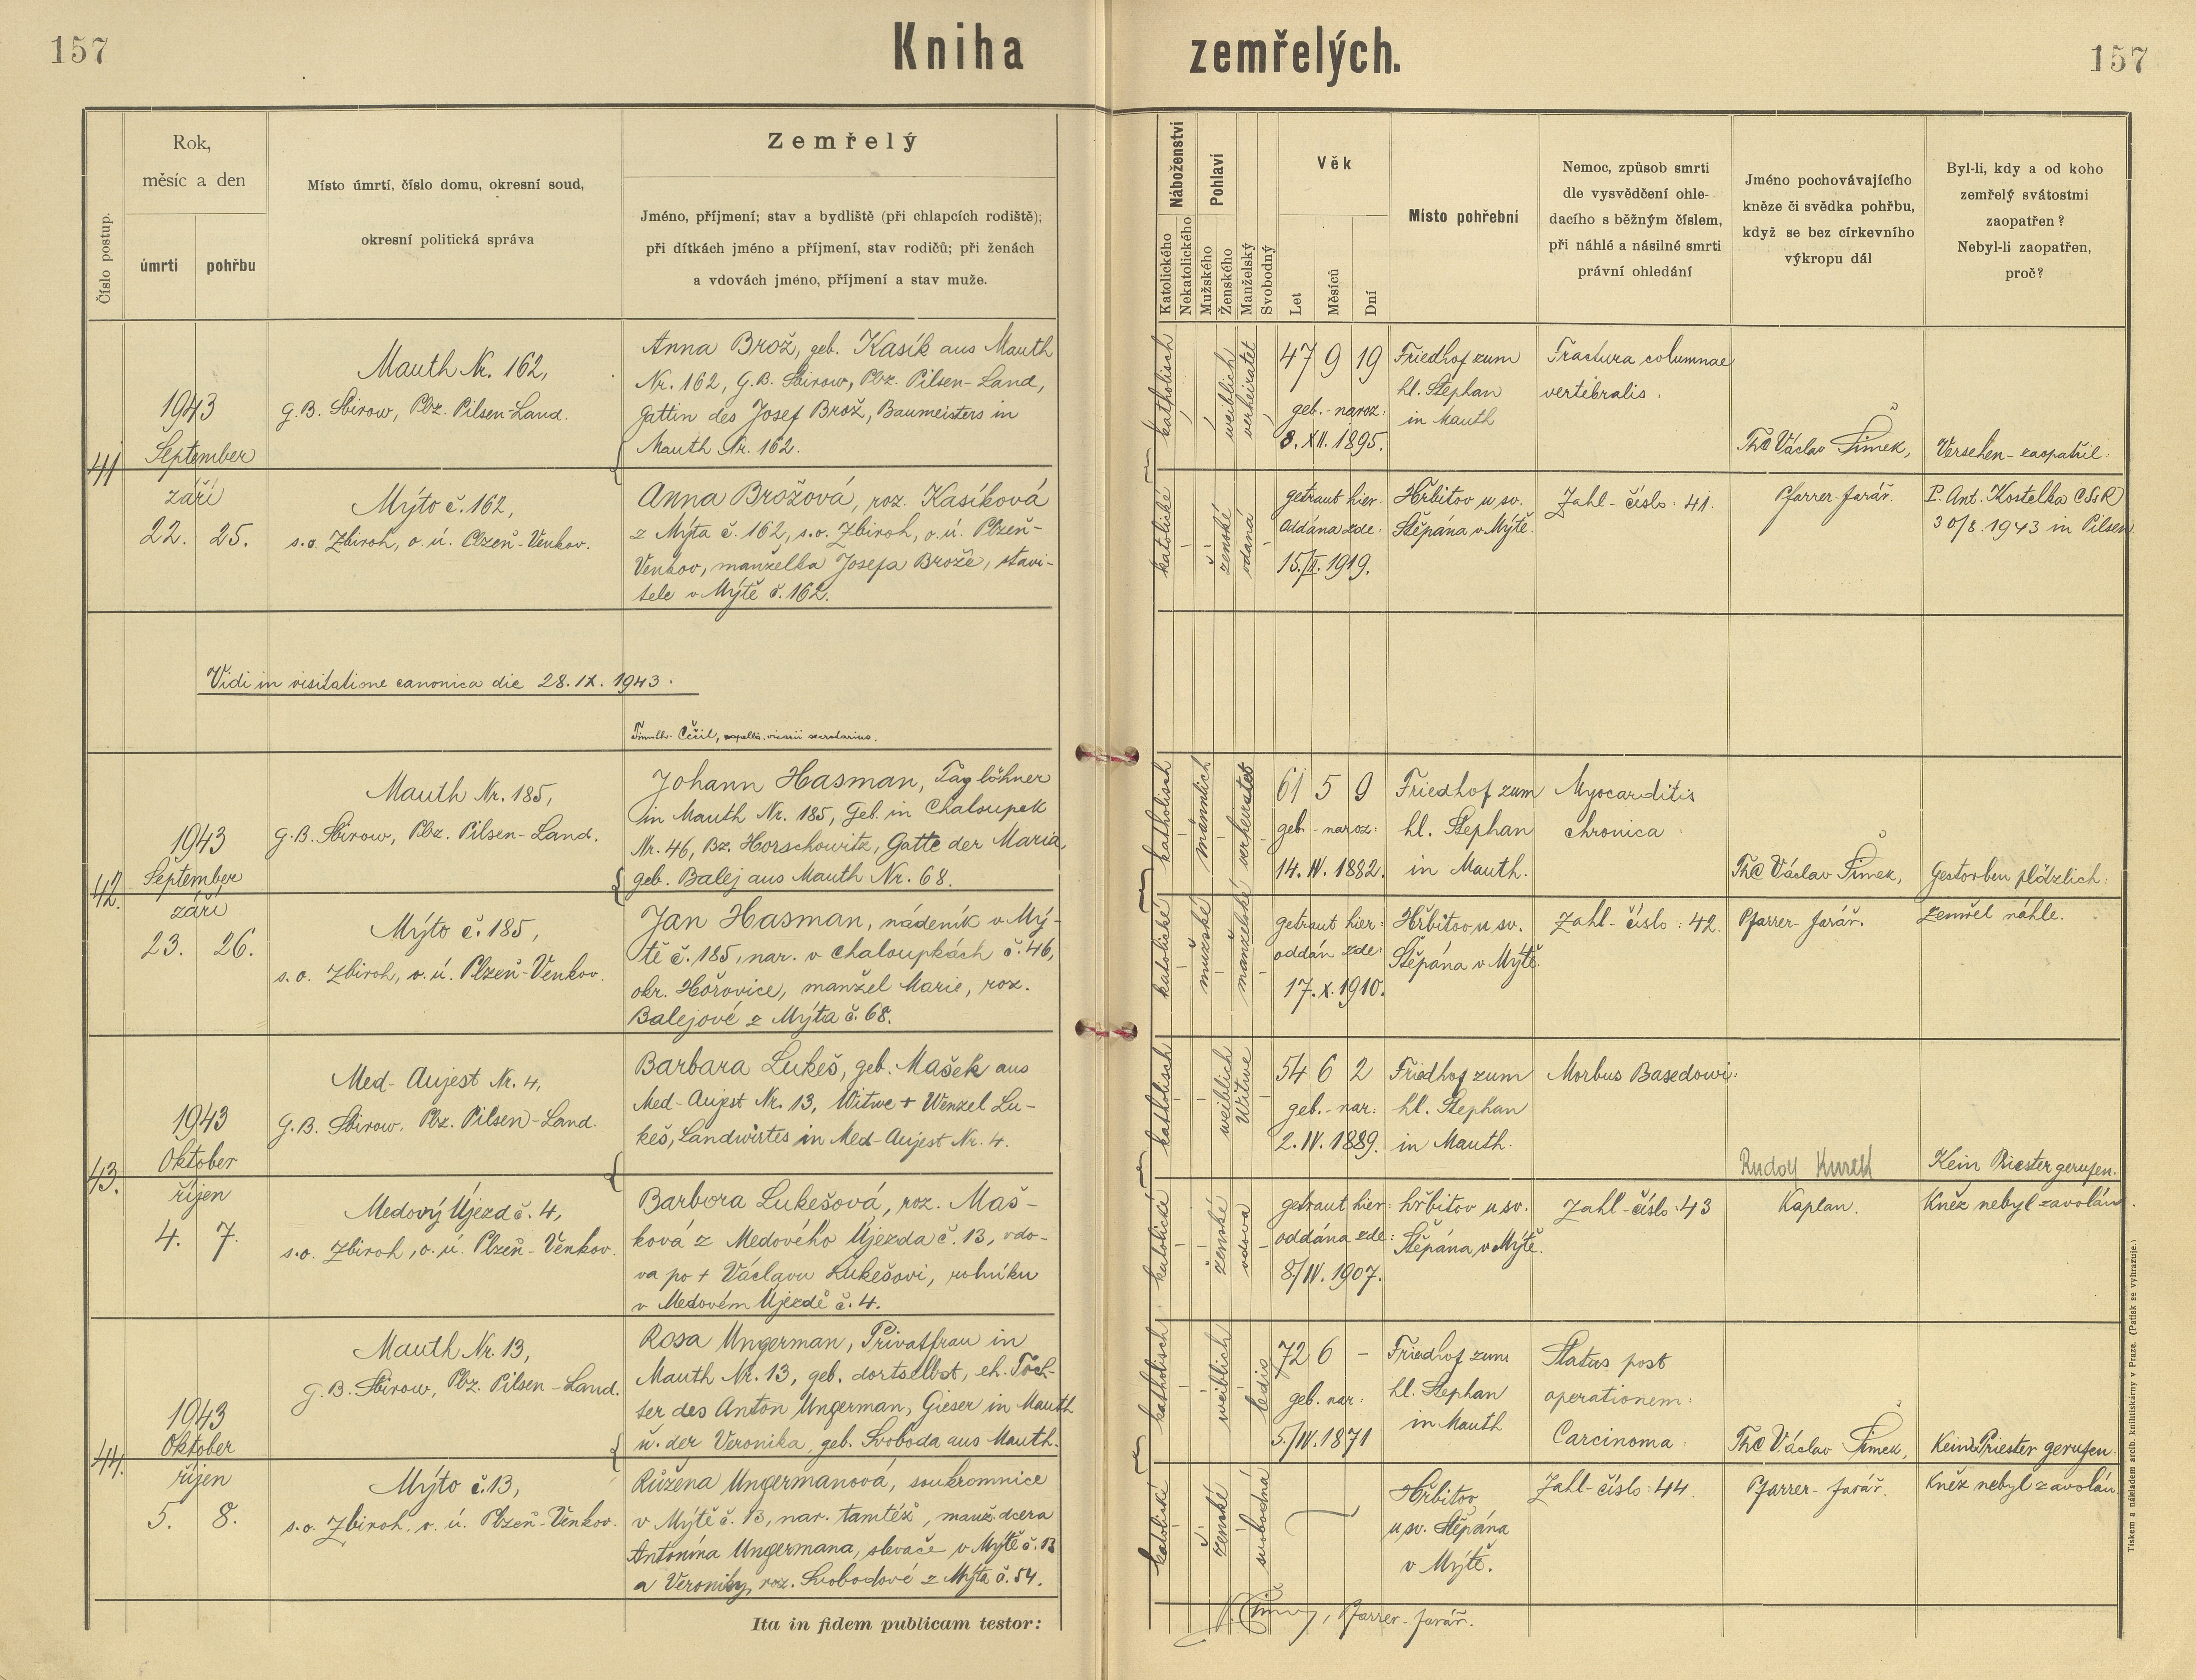 157
Kniha zemřelých.
157
Číslo postup.
Rok,
měsíc a den
úmrtí
pohřbu
Místo úmrtí, číslo domu, okresní soud,
okresní politická správa
Zemřelý
Jméno, příjmení; stav a bydliště (při chlapcích rodiště);
při dítkách jméno a příjmení, stav rodičů; při ženách
a vdovách jméno, příjmení a stav muže.
Náboženství
Katolického
Nekatolického
Pohlaví
Mužského
Ženského
Manželský
Svobodný
Věk
Let
Měsíců
Dní
Místo pohřební
Nemoc, způsob smrti
dle vysvědčení ohle-
dacího s běžným číslem,
při náhlé a násilné smrti
právní ohledání
Jméno pochovávajícího
kněze či svědka pohřbu,
když se bez církevního
výkropu dál
Byl-li, kdy a od koho
zemřelý svátostmi
zaopatřen?
Nebyl-li zaopatřen,
proč?
41
1943
September
září
22. 25.
Mauth Nr. 162,
G.B. Sbirow, Pbz. Pilsen-Land.
Mýto č. 162,
s.o. Zbiroh, o.ú. Plzeň-Venkov.
Anna Brož, geb. Kasík aus Mauth
Nr. 162, G.B. Sbirow, Pbz. Pilsen-Land,
Gattin des Josef Brož, Baumeisters in
Mauth Nr. 162.
Anna Brožová, roz. Kasíková
z Mýta č. 162, s.o. Zbiroh, o.ú. Plzeň-
Venkov, manželka Josefa Brože, stavi-
tele v Mýtě č. 162.
katholisch
weiblich
verheiratet
katolické
ženské
vdaná
47 9 19
geb.-naroz:
8. XII. 1895.
getraut hier:
oddána zde:
15./II. 1919.
Friedhof zum
hl. Stephan
in Mauth
Hřbitov u sv.
Štěpána v Mýtě.
Fractura columnae
vertebralis.
Zahl-číslo: 41.
Václav Šimek,
Pfarrer-farář.
Versehen-zaopatřil:
P. Ant. Kostelka CSsR
30/8. 1943 in Pilsen
Vidi in visitatione canonica die 28. IX. 1943.
vicarii secretarius.
42.
1943
September
září
23. 26.
Mauth Nr. 185,
G.B. Sbirow, Pbz. Pilsen-Land.
Mýto č. 185,
s.o. Zbiroh, o.ú. Plzeň-Venkov.
Johann Hasman, Taglöhner
in Mauth Nr. 185, Geb. in Chaloupek
Nr. 46, Bz. Horschowitz, Gatte der Maria,
geb. Balej aus Mauth Nr. 68.
Jan Hasman, nádeník v Mý-
tě č. 185, nar. v Chaloupkách č. 46,
okr. Hořovice, manžel Marie, roz.
Balejové z Mýta č. 68.
katholisch
männlich
verheiratet
katolické
mužské
manželské
61 5 9
geb.-naroz:
14. IV. 1882.
getraut hier:
oddán zde:
17. X. 1910.
Friedhof zum
hl. Stephan
in Mauth.
Hřbitov u sv.
Štěpána v Mýtě.
Myocarditis
chronica.
Zahl-číslo: 42.
Václav Šimek,
Pfarrer-farář.
Gestorben plötzlich:
Zemřel náhle.
43.
1943
Oktober
říjen
4. 7.
Med-Aujest Nr. 4,
G.B. Sbirow. Pbz. Pilsen-Land.
Medový Újezd č. 4,
s.o. Zbiroh, o.ú. Plzeň-Venkov.
Barbara Lukeš, geb. Mašek aus
Med-Aujest Nr. 13, Witwe + Wenzel Lu-
keš, Landwirtes in Med-Aujest Nr. 4.
Barbora Lukešová, roz. Maš-
ková z Medového Újezda č. 13, vdo-
va po + Václavu Lukešovi, rolníku
v Medovém Újezdě č. 4.
katholisch
weiblich
Witwe
katolické
ženské
vdova
54 6 2
geb.-nar:
2. IV. 1889.
getraut hier:
oddána zde:
8/IV. 1907.
Friedhof zum
hl. Stephan
in Mauth.
hřbitov u sv.
Štěpána v Mýtě.
Morbus Basedowi.
Zahl-číslo: 43
Rudolf Kurek
Kaplan.
Kein Priester gerufen.
Kněz nebyl zavolán.
44.
1943
Oktober
říjen
5. 8.
Mauth Nr. 13,
G.B. Sbirow, Pbz. Pilsen-Land.
Mýto č. 13,
s.o. Zbiroh, o.ú. Plzeň-Venkov.
Rosa Ungerman, Privatfrau in
Mauth Nr. 13, geb. dortselbst, eh. Töch-
ter des Anton Ungerman, Gieser in Mauth
u. der Veronika, geb. Svoboda aus Mauth.
Růžena Ungermanová, soukromnice
v Mýtě č. 13, nar. tamtéž, manž. dcera
Antonína Ungermana, slevače v Mýtě č. 13
a Veroniky, roz. Svobodové z Mýta č. 54.
katholisch
weiblich
ledig
katolické
ženské
svobodná
72 6 -
geb. nar:
5./IV. 1871
Friedhof zum
hl. Stephan
in Mauth
Hřbitov
u sv. Štěpána
v Mýtě.
Status post
operationem:
Carcinoma.
Zahl-číslo: 44.
Václav Šimek,
Pfarrer-farář.
Kein Priester gerufen.
Kněz nebyl zavolán
Ita in fidem publicam testor:
Pfarrer-farář.
Tiskem a nákladem arcib. knihtiskárny v Praze. (Patisk se vyhrazuje.)